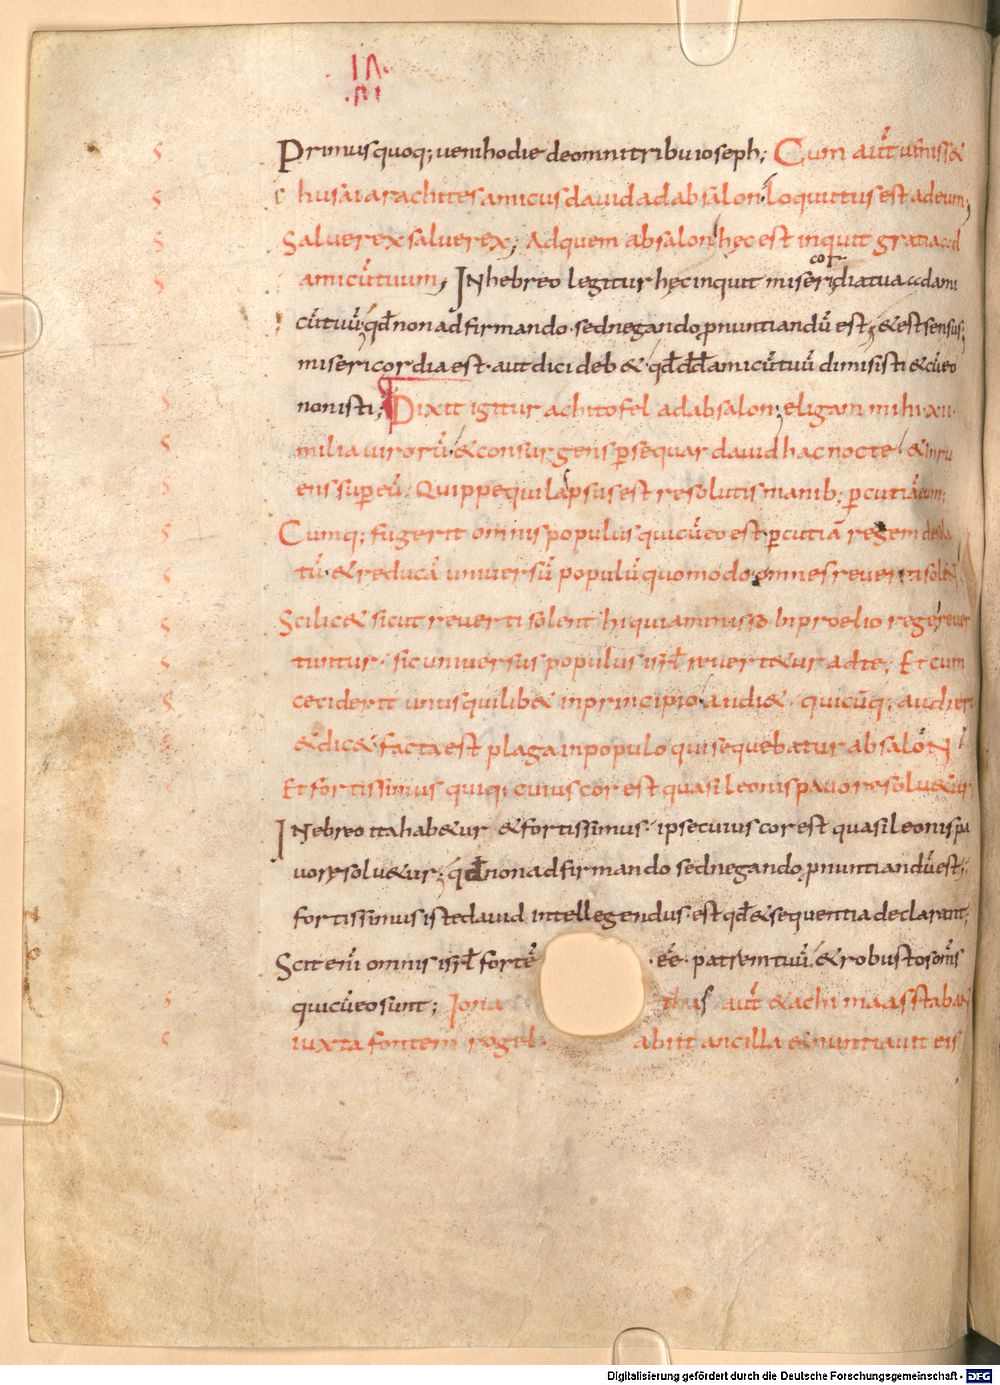 Primus quoq; veni hodie de omni tribu ioseph; Cum aūt venisset
husai arachites amicus dauid ad absalon. loquutus est ad eum;
Salue rex salue rex; Ad quem absalon hęc est inquit gratia ad
amicū tuum; IN hebreo legitur hęc inquit misericordia tua ad ami
cū tuū; qđ non adfirmando. sed negando pnuntiandū est; & est sensus;
misericordia est. aut dici deb&. qđ đđ amicū tuū dimisisti & cū eo
non isti; Dixit igitur achitofel ad absalon; eligam mihi .xii.
milia uirorū. & consurgens psequar dauid hac nocte & inru
ens sup eū. Quippe qui lapsus est & resolutis manib; pcutiā eum;
Cumq; fugerit omnis populus qui cū eo est. pcutiā regem desola
tū. & reducā uniuersū populū quomodo omnes reuerti solēN;
Scilic& sicut reuerti solent hi qui ammisso in proelio rege reuer
tuntur. sic uniuersus populus isrł reuert&ur ad te; Et cum
ceciderit unus quilib& in principio. audi&. quicūq; audier
& dic&. facta est plaga in populo qui sequebatur absaloN
Et fortissimus quiq; cuius cor est quasi leonis pauore solu&ur;
IN ebreo ita hab&ur & fortissimus. ipse cuius cor est quasi leonis pa
uore solu&ur; qđ non adfirmando sed negando pnuntiandū est.
fortissimus iste dauid intellegendus est qđ & sequentia declarant;
Scit enī omnis isrł fortē . eē. patrem tuū. & robustos omīs
qui cū eo sunt; Iona thas aūt & achimaas stabant
iuxta fontem rogel. abiit ancilla & nuntiauit eis
Digitalisierung gefördert durch die Deutsche Forschungsgemeinschaft - DFG